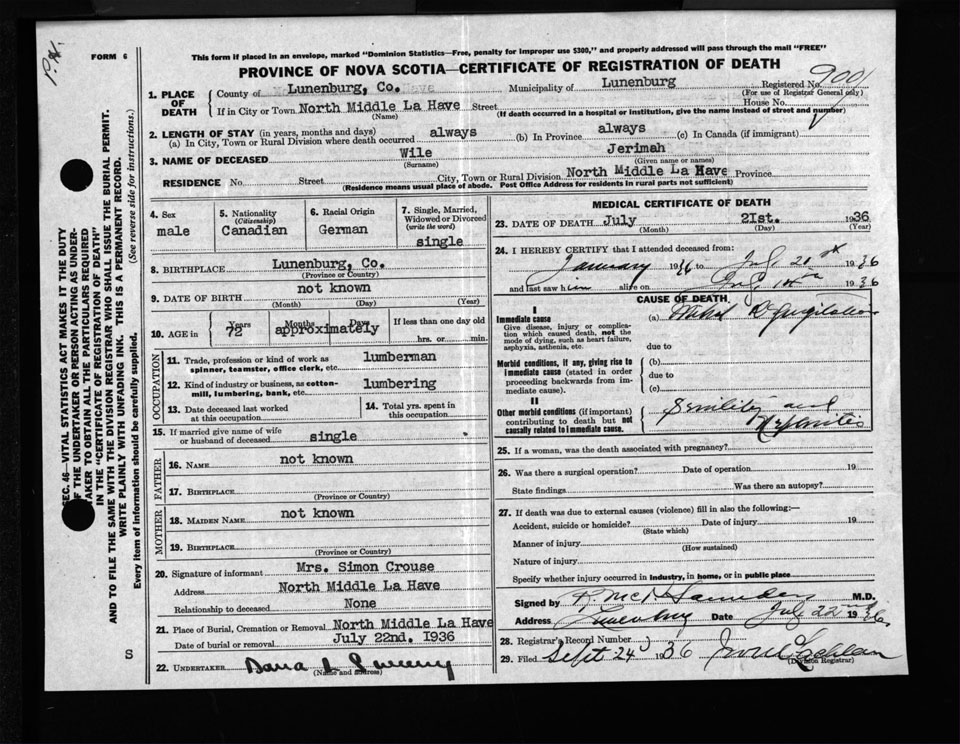 P.H.
FORM 6
This form if placed in an envelope, marked "Dominion Statistics—Free, penalty for improper use $300," and properly addressed will pass through the mail "FREE"
PROVINCE OF NOVA SCOTIA—CERTIFICATE OF REGISTRATION OF DEATH
1. PLACE OF DEATH
County of Lunenburg, Co. Municipality of Lunenburg Registered No. 9001
(For use of Registrar General only)
If in City or Town North Middle La Have Street House No.
(Name) (If death occurred in a hospital or institution, give the name instead of street and number)
2. LENGTH OF STAY (in years, months and days)
(a) In City, Town or Rural Division where death occurred always (b) In Province always (c) In Canada (if immigrant)
3. NAME OF DECEASED Wile Jerimah
(Surname) (Given name or names)
RESIDENCE No. Street City, Town or Rural Division North Middle La Have Province
(Residence means usual place of abode. Post Office Address for residents in rural parts not sufficient)
4. Sex
male
5. Nationality
(Citizenship)
Canadian
6. Racial Origin
German
7. Single, Married, Widowed or Divorced
(write the word)
single
8. BIRTHPLACE Lunenburg, Co.
(Province or County)
9. DATE OF BIRTH not known
(Month) (Day) (Year)
10. AGE in Years Months Days If less than one day old
72 approximately hrs. or min.
OCCUPATION
11. Trade, profession or kind of work as spinner, teamster, office clerk, etc. lumberman
12. Kind of industry or business, as cotton-mill, lumbering, bank, etc. lumbering
13. Date deceased last worked at this occupation
14. Total yrs. spent in this occupation
15. If married give name of wife or husband of deceased single
FATHER
16. NAME not known
17. BIRTHPLACE
(Province or Country)
MOTHER
18. MAIDEN NAME not known
19. BIRTHPLACE
(Province or Country)
20. Signature of informant Mrs. Simon Crouse
Address North Middle La Have
Relationship to deceased None
21. Place of Burial, Cremation or Removal North Middle La Have
Date of burial or removal July 22nd. 1936
22. UNDERTAKER
(Name and address)
MEDICAL CERTIFICATE OF DEATH
23. DATE OF DEATH July 21st. 1936
(Month) (Day) (Year)
24. I HEREBY CERTIFY that I attended deceased from:
January 1936 to July 20th 1936
and last saw him alive on July 1936
CAUSE OF DEATH
I
Immediate cause
Give disease, injury or complication which caused death, not the mode of dying, such as heart failure, asphyxia, asthenia, etc.
(a) Mitral Regurgitation
due to
Morbid conditions, if any, giving rise to immediate cause (stated in order proceeding backwards from immediate cause).
(b)
due to
(c)
II
Other morbid conditions (if important) contributing to death but not causally related to immediate cause.
Senility and
Nephritis
25. If a woman, was the death associated with pregnancy?
26. Was there a surgical operation? Date of operation 19
State findings Was there an autopsy?
27. If death was due to external causes (violence) fill in also the following:—
Accident, suicide or homicide? Date of injury 19
(State which)
Manner of injury
(How sustained)
Nature of injury
Specify whether injury occurred in industry, in home, or in public place
Signed by M.D.
Address Lunenburg Date July 22 1936
28. Registrar's Record Number
29. Filed Sept 24 1936
(Division Registrar)
SEC. 46—VITAL STATISTICS ACT MAKES IT THE DUTY
OF THE UNDERTAKER OR PERSON ACTING AS UNDER-
TAKER TO OBTAIN ALL THE PARTICULARS REQUIRED
IN THE "CERTIFICATE OF REGISTRATION OF DEATH"
AND TO FILE THE SAME WITH THE DIVISION REGISTRAR WHO SHALL ISSUE THE BURIAL PERMIT.
WRITE PLAINLY WITH UNFADING INK. THIS IS A PERMANENT RECORD.
Every item of information should be carefully supplied. (See reverse side for instructions.)
S